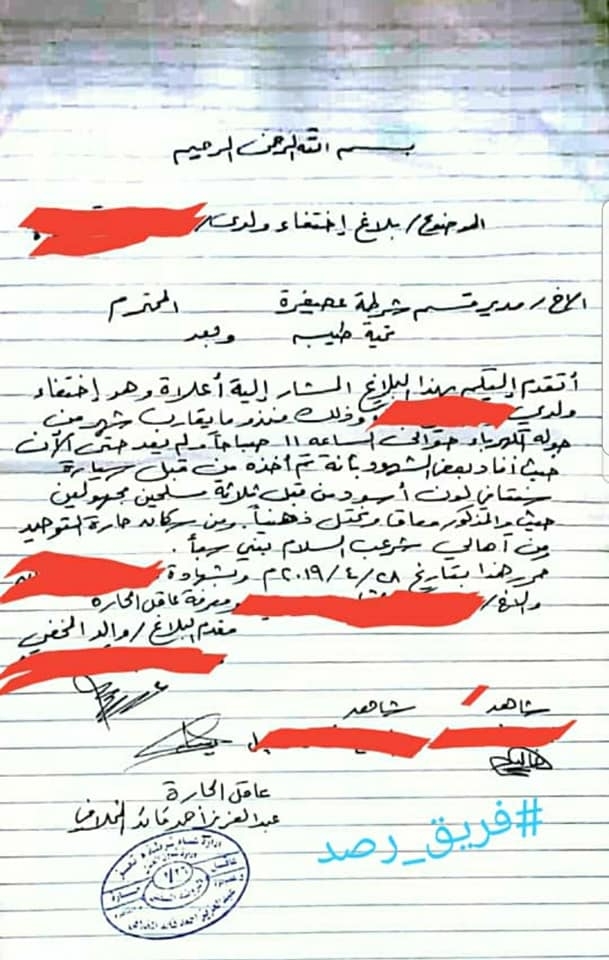 بسم الله الرحمن الرحيم
الموضوع / بلاغ إختفاء ولدي /
الاخ / مدير قسم شرطة عصيفرة المحترم
تحية طيبه وبعد
أتقدم إليكم بهذا البلاغ المشار إلية أعلاة وهو إختفاء
ولدي وذلك منذو ما يقارب شهر من
جوله الكهرباء حوالى الساعه ١١ صباحاً ولم يعد حتى الآن
حيث أفاد بعض الشهود بأنة تم أخذه من قبل سيارة
سنتافي لون أسود من قبل ثلاثة مسلحين مجهولين
حيث والمذكور معاق ومختل ذهنياً. ومن سكان حارة التوحيد
ومن أهالي شرعب السلام بني سبأ.
حرر هذا بتاريخ ٢٨ / ٤ / ٢٠١٩م وبشهادة
والاخ / ومعرفة عاقل الحاره
مقدم البلاغ / والد المخفي
شاهد شاهد
عاقل الحارة
عبدالعزيز أحمد قائد
#فريق_رصد